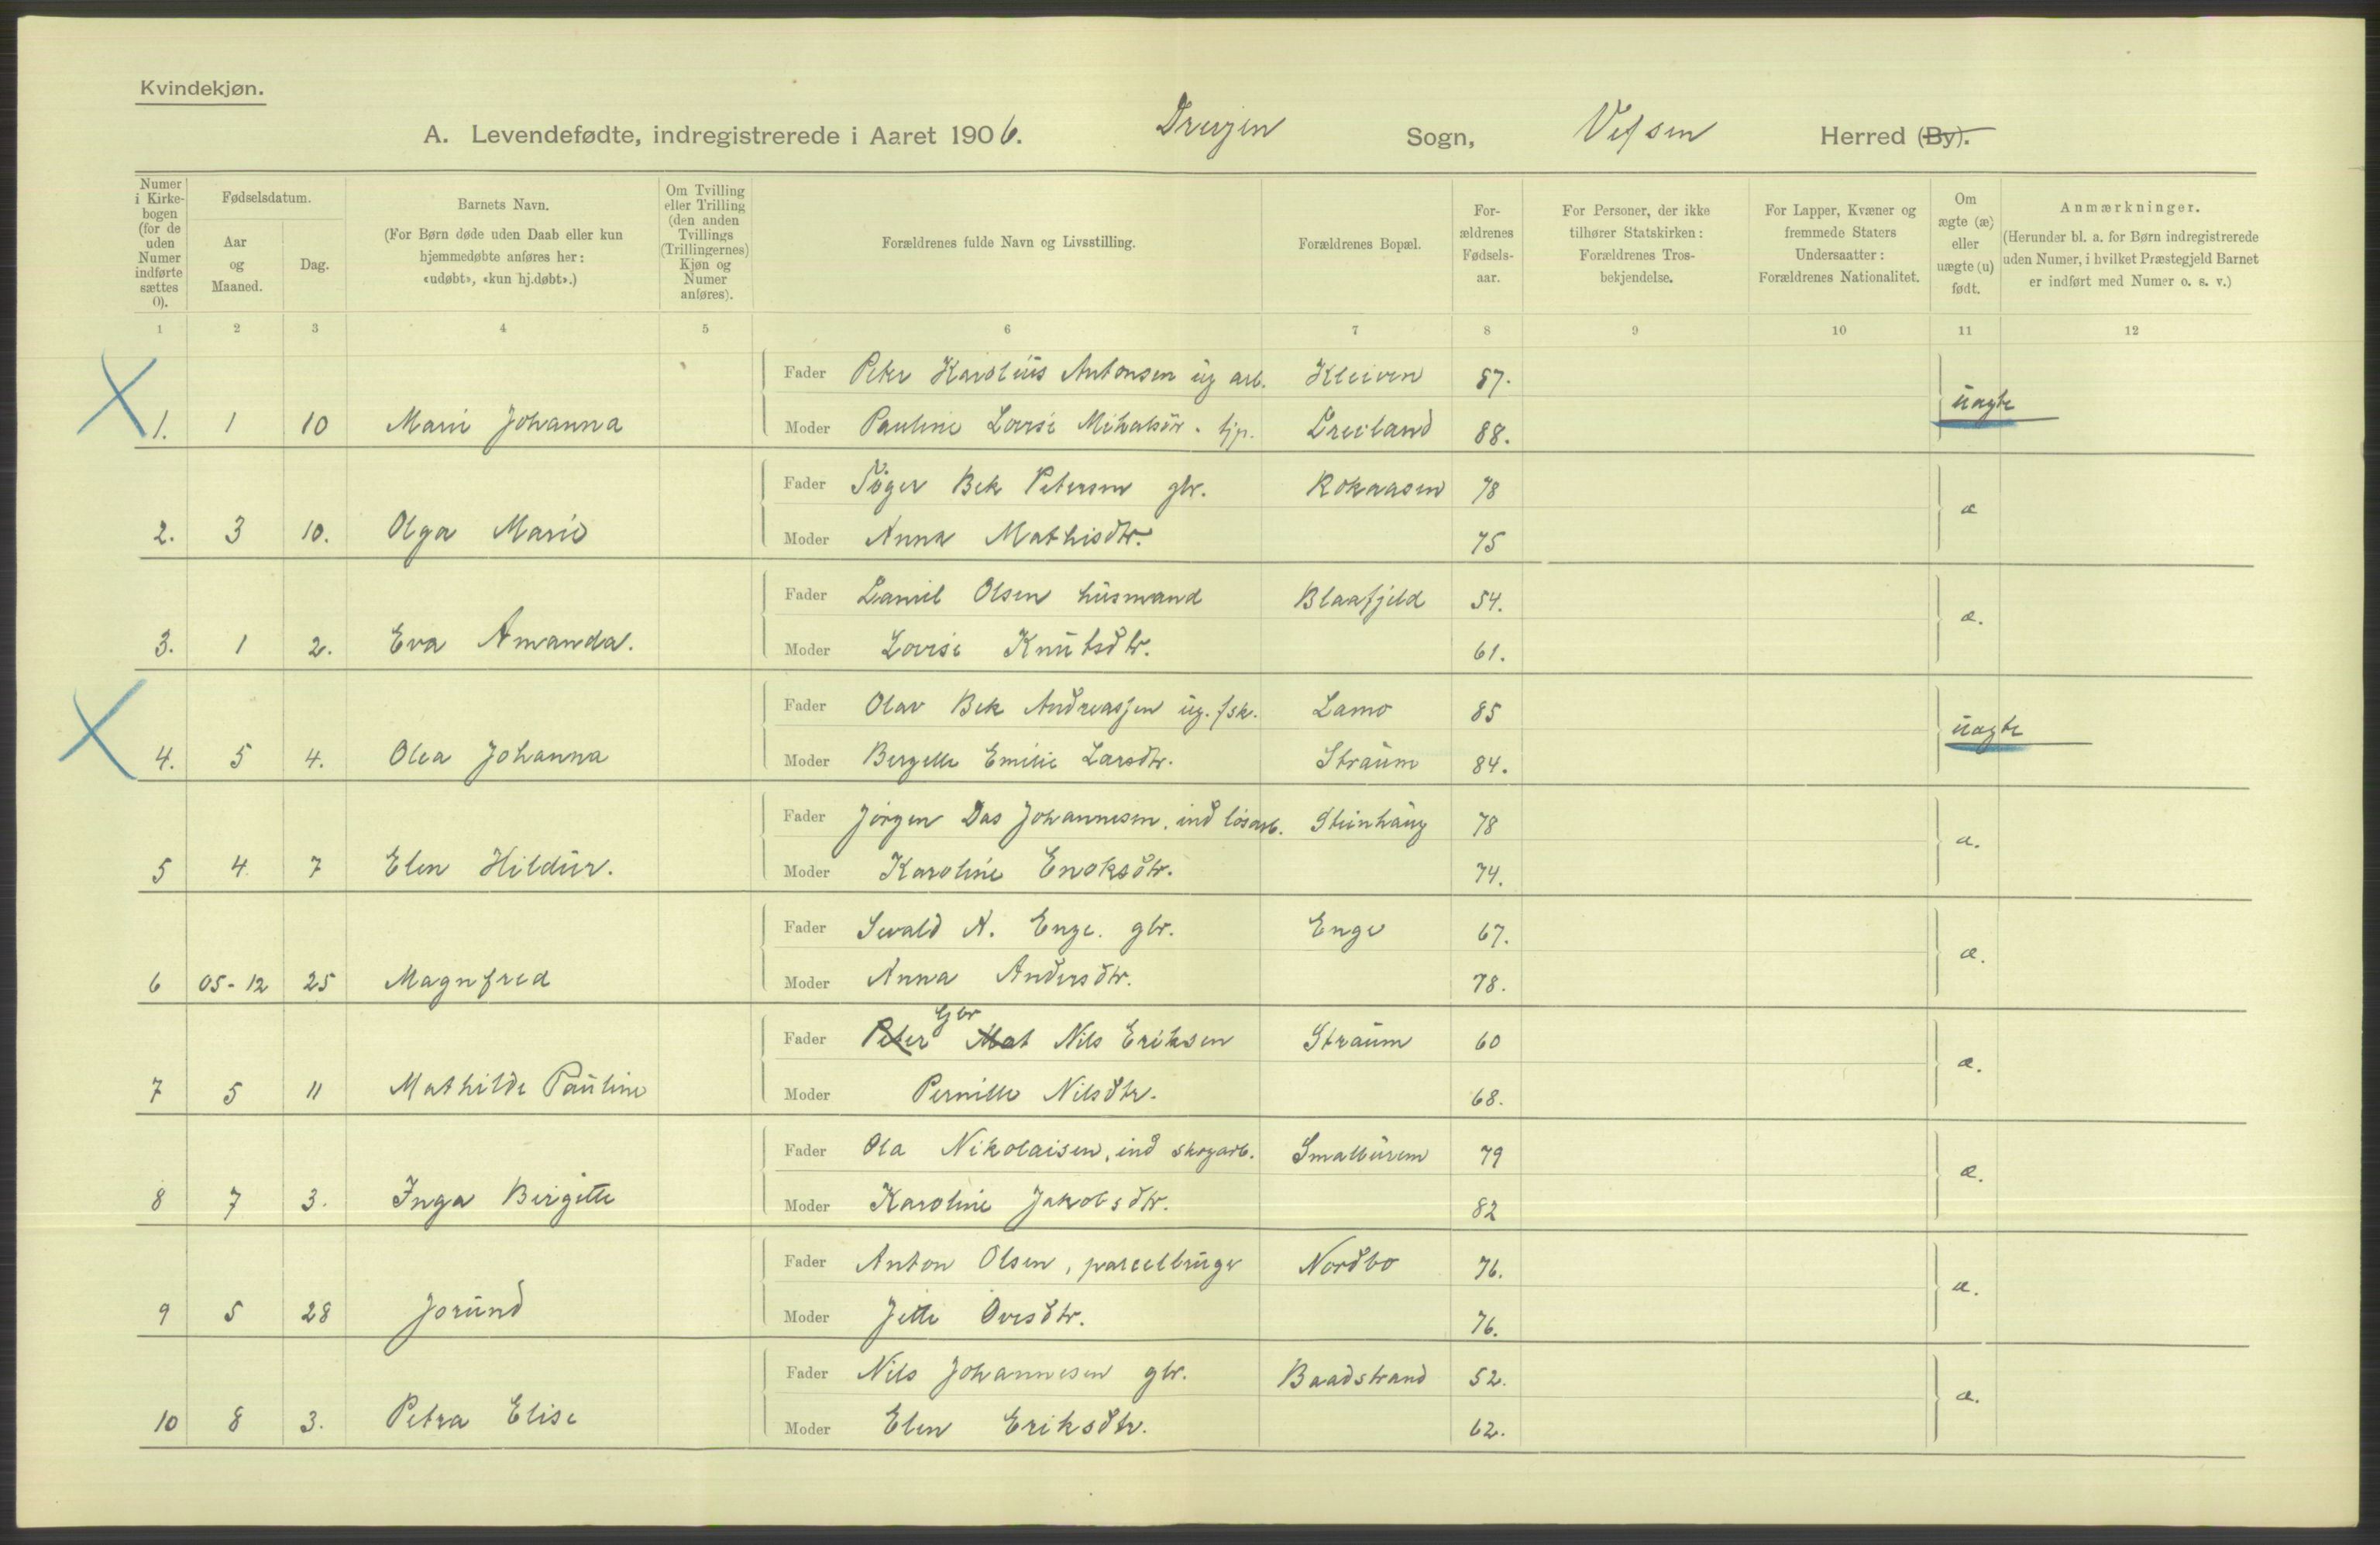 Kvindekjøn.
A. Levendefødte, indregistrerede i Aaret 1906. Drevjen Sogn, Vefsen Herred (By).
Numer i Kirkebogen (for de uden Numer indførte sættes 0).
Fødselsdatum.
Aar og Maaned.
Dag.
Barnets Navn.
(For Børn døde uden Daab eller kun hjemmedøbte anføres her: «udøbt», «kun hj.døbt».)
Om Tvilling eller Trilling (den anden Tvillings (Trillingernes) Kjøn og Numer anføres).
Forældrenes fulde Navn og Livsstilling.
Forældrenes Bopæl.
Forældrenes Fødselsaar.
For Personer, der ikke tilhører Statskirken: Forældrenes Trosbekjendelse.
For Lapper, Kvæner og fremmede Staters Undersaatter: Forældrenes Nationalitet.
Om ægte (æ) eller uægte (u) født.
Anmærkninger.
(Herunder bl. a. for Børn indregistrerede uden Numer, i hvilket Præstegjeld Barnet er indført med Numer o. s. v.)
1 2 3 4 5 6 7 8 9 10 11 12
Fader Peter Karolius Antonsen ug arb. Kleiven 87.
1. 1 10 Marie Johanna Moder Pauline Lovise Mihalsdtr. tjp. 88. uægte
Fader Bek Petersen gbr. Rokaasen 78
2. 3 10. Olga Marie Moder Anna Mathisdtr. 75 æ
Fader Daniel Olsen husmand Blaafjeld 54.
3. 1 2. Eva Amanda. Moder Lovise Knutsdtr. 61. æ.
Fader Olav Bek Andreassen ug. fsk. Lamo 85
4. 5 4. Olea Johanna Moder Bergette Emilie Larsdtr. Straum 84. uægte
Fader Jörgen Das Johannesen, ind lösarb. Steinhaug 78
5 4 7 Elen Hildur. Moder Karoline Enoksdtr. 74. æ.
Fader Sevald A. Enge. gbr. Enge 67.
6 05-12 25 Magnfred Moder Anna Andersdtr. 78. æ.
Gbr
Fader Peter Mat Nils Eriksen Straum 60
7 5 11 Mathilde Pauline Moder Pernille Nilsdtr. 68. æ.
Fader Ola Nikolaisen, ind skogarb. Smallurem 79
8 7 3. Inga Birgitte Moder Karoline Jakobsdtr. 82 æ.
Fader Anton Olsen, parcelbruger Nordbo 76.
9 5 28 Jorund Moder Jette Ovesdtr. 76. æ.
Fader Nils Johannesen gbr. Baadstrand 52.
10 8 3. Petra Elise Moder Elen Eriksdtr. 62. æ.